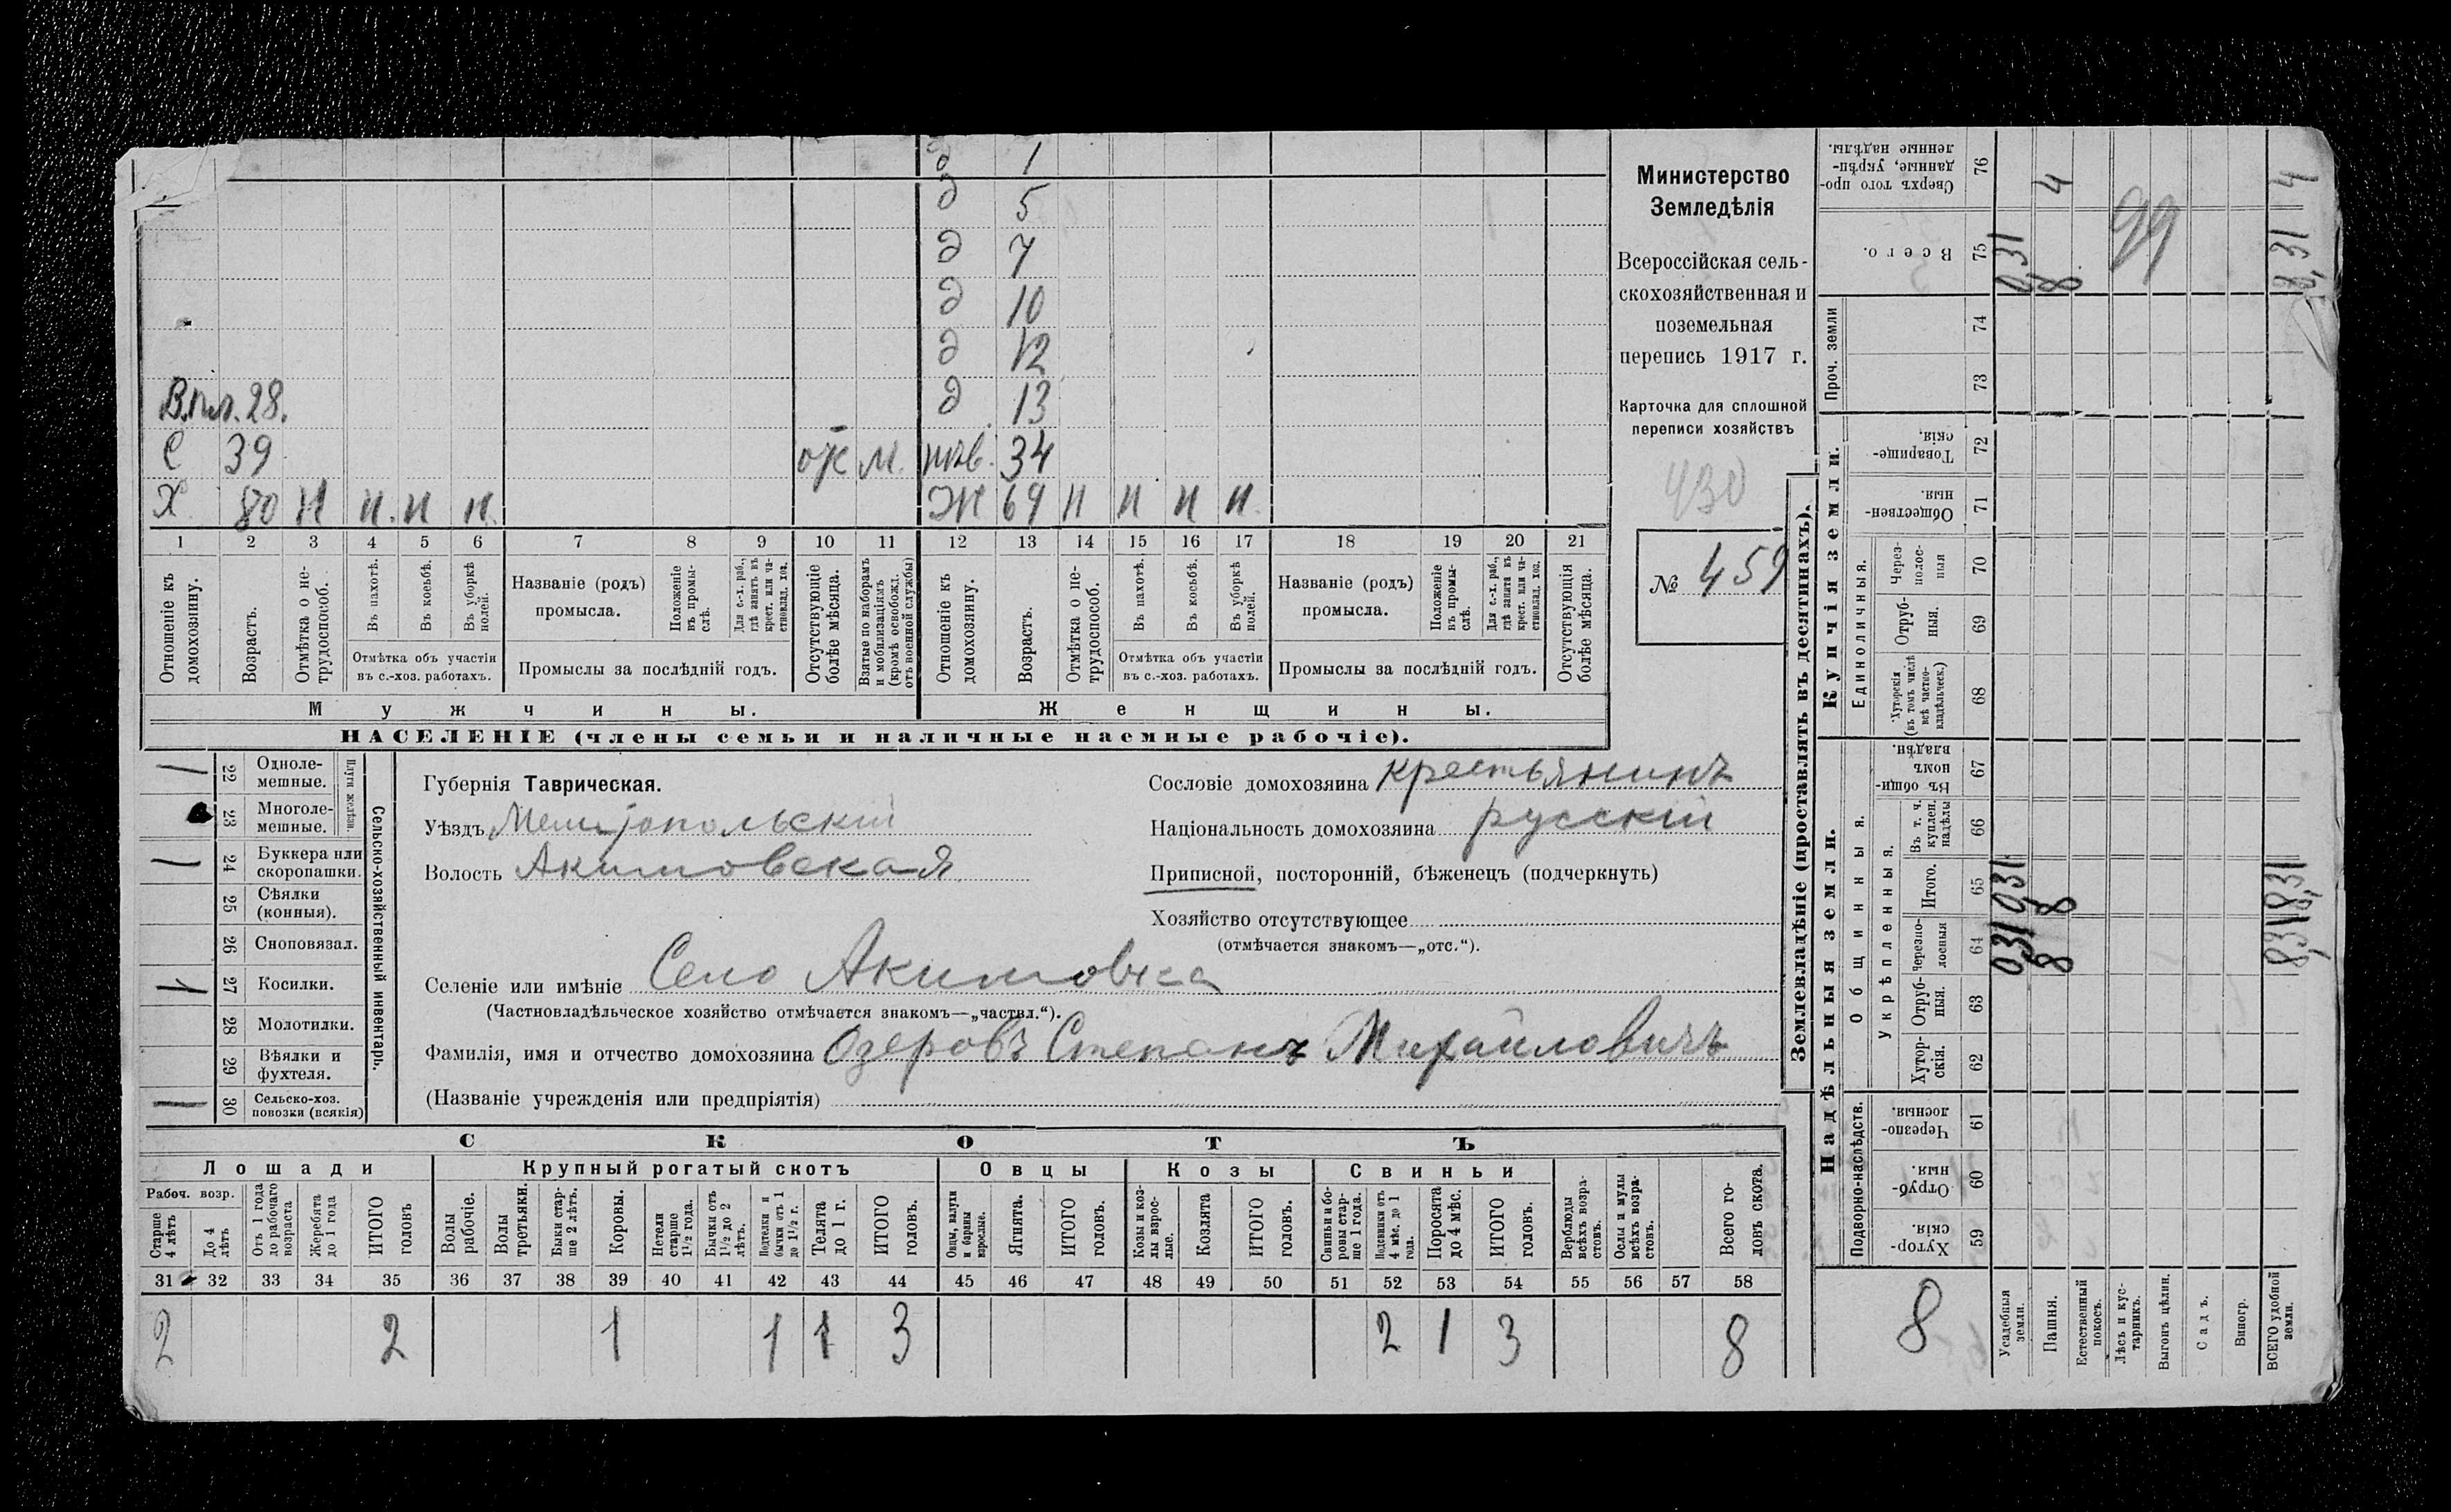 д 1
д 5
д 7
д 10
д 12
В.пл. 28. д 13
С 39 от м. нев. 34
Х 80 н н. н н. Ж 69 н н н н.
1 2 3 4 5 6 7 8 9 10 11 12 13 14 15 16 17 18 19 20 21
Отношеніе къ домохозяину.
Возрастъ.
Отмѣтка о не-
трудоспособ.
Въ пахотѣ.
Въ косьбѣ.
Въ уборкѣ
полей.
Отмѣтка объ участіи
въ с.-хоз. работахъ.
Названіе (родъ)
промысла.
Положеніе
въ промы-
слѣ.
Для с.-х. раб.,
гдѣ занятъ въ
крест. или ча-
стновлад. хоз.
Промыслы за послѣдній годъ.
Отсутствующіе
болѣе мѣсяца.
Взятые по наборамъ
и мобилизаціямъ
(кромѣ освобожд.
отъ военной службы)
Отношеніе къ
домохозяину.
Возрастъ.
Отмѣтка о не-
трудоспособ.
Въ пахотѣ.
Въ косьбѣ.
Въ уборкѣ
полей.
Отмѣтка объ участіи
въ с.-хоз. работахъ.
Названіе (родъ)
промысла.
Положеніе
въ промы-
слѣ.
Для с.-х. раб.,
гдѣ занята въ
крест. или ча-
стновлад. хоз.
Промыслы за послѣдній годъ.
Отсутствующія
болѣе мѣсяца.
Мужчины. Женщины.
НАСЕЛЕНІЕ (члены семьи и наличные наемные рабочіе).
Министерство
Земледѣлія
Всероссійская сель-
скохозяйственная и
поземельная
перепись 1917 г.
Карточка для сплошной
переписи хозяйствъ
430
№ 459
1 22 Одноле-
мешные.
23 Многоле-
мешные.
Плуги желѣзн.
1 24 Буккера или
скоропашки.
25 Сѣялки
(конныя).
26 Сноповязал.
1 27 Косилки.
28 Молотилки.
29 Вѣялки и
фухтеля.
1 30 Сельско-хоз.
повозки (всякія)
Сельско-хозяйственный инвентарь.
Губернія Таврическая.
Уѣздъ Мелитопольскій
Волость Акимовская
Сословіе домохозяина крестьянинъ
Національность домохозяина русскій
Приписной, посторонній, бѣженецъ (подчеркнуть)
Хозяйство отсутствующее
(отмѣчается знакомъ—„отс.“).
Селеніе или имѣніе Село Акимовка
(Частновладѣльческое хозяйство отмѣчается знакомъ—„частвл.“).
Фамилія, имя и отчество домохозяина Озеровъ Степанъ Михайловичъ
(Названіе учрежденія или предпріятія)
СКОТЪ
Лошади Крупный рогатый скотъ Овцы Козы Свиньи
Рабоч. возр.
Старше
4 лѣтъ
До 4
лѣтъ
Отъ 1 года
до рабочаго
возраста
Жеребята
до 1 года
ИТОГО
головъ
Волы
рабочіе.
Волы
третьяки.
Быки стар-
ше 2 лѣтъ.
Коровы.
Нетели
старше
1½ года.
Бычки отъ
1½ до 2
лѣтъ.
Подтелки и
бычки отъ 1
до 1½ г.
Телята
до 1 г.
ИТОГО
головъ.
Овцы, валухи
и бараны
взрослые.
Ягнята.
ИТОГО
головъ.
Козы и коз-
лы взрос-
лые.
Козлята
ИТОГО
головъ.
Свиньи и бо-
ровы стар-
ше 1 года.
Подсвинки отъ
4 мѣс. до 1
года.
Поросята
до 4 мѣс.
ИТОГО
головъ.
Верблюды
всѣхъ возра-
стовъ.
Ослы и мулы
всѣхъ возра-
стовъ.
Всего го-
ловъ скота.
31 32 33 34 35 36 37 38 39 40 41 42 43 44 45 46 47 48 49 50 51 52 53 54 55 56 57 58
2 2 1 1 1 3 2 1 3 8
Землевладѣніе (проставлять въ десятинахъ).
Надѣльныя земли. Купчія земли. Проч. земли
Подворно-наслѣдств.
Общинныя.
Укрѣпленныя.
Единоличныя.
Хутор-
скія. 59
Отруб-
ныя. 60
Черезпо-
лосныя. 61
Хутор-
скія. 62
Отруб-
ныя. 63
Черезпо-
лосныя 64 031 8 8,31
Итого. 65 031 8 8,31
Въ т. ч.
куплен.
надѣлы 66
Въ общин-
номъ
владѣн. 67
Хуторскія
(въ томъ числѣ
всѣ частно-
владѣльческ.) 68
Отруб-
ныя. 69
Через-
полос-
ныя 70
Обществен-
ныя. 71
Товарище-
скія. 72
73
74
Всего. 75 0,31 8 8,31
Сверхъ того про-
данные, укрѣп-
ленные надѣлы. 76 4 4
99
8
Усадебныя
земли.
Пашня.
Естественный
покосъ.
Лѣсъ и кус-
тарникъ.
Выгонъ цѣлин.
Садъ.
Виногр.
ВСЕГО удобной
земли.